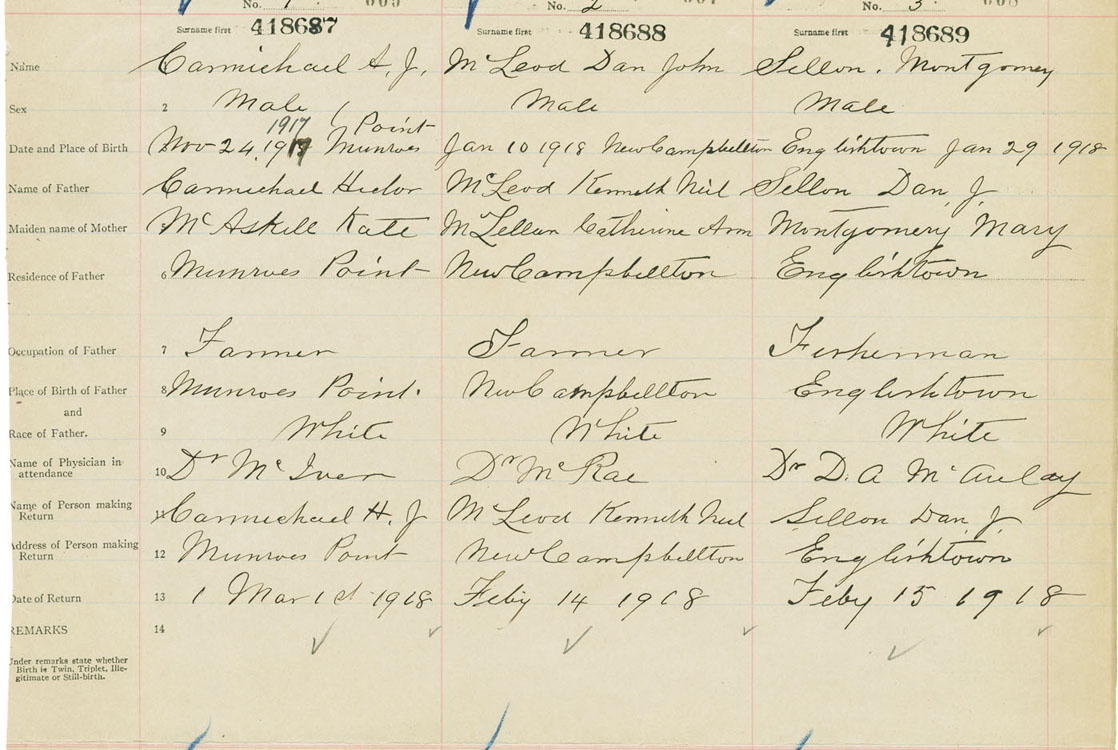 No. 1 No. 2 No. 3
Surname first 418687 Surname first 418688 Surname first 418689
Name 1 Carmichael A. J. McLeod Dan John Sellon. Montgomery
Sex 2 Male Male Male
1917 Point
Date and Place of Birth Nov 24, 1917 Munroes Jan 10 1918 New Campbellton Englishtown Jan 29 1918
Name of Father Carmichael Hector McLeod Kenneth Neil Sellon Dan, J
Maiden name of Mother McAskell Kate McLellan Catherine Ann Montgomery Mary
Residence of Father 6 Munroes Point New Campbellton Englishtown
Occupation of Father 7 Farmer Farmer Fisherman
Place of Birth of Father 8 Munroes Point. New Campbellton Englishtown
and
Race of Father. 9 White White White
Name of Physician in attendance 10 Dr McIver Dr McRae Dr D. A McAulay
Name of Person making Return 11 Carmichael H. J McLeod Kenneth Neil Sellon Dan, J
Address of Person making Return 12 Munroes Point New Campbellton Englishtown
Date of Return 13 1 Mar 1st 1918 Feby 14 1918 Feby 15 1918
REMARKS 14
Under remarks state whether
Birth is Twin, Triplet, Ille-
gitimate or Still-birth.